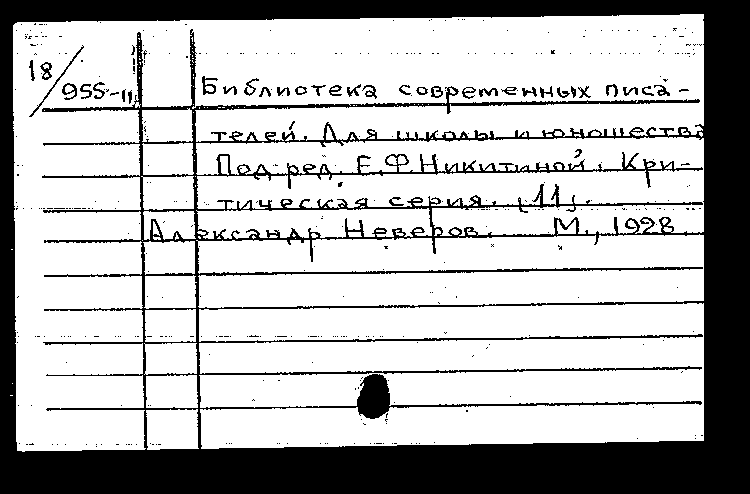 18/955-11 Библиотека современных писа-
телей. Для школы и юношества
Под ред. Е.Ф.Никитиной. Кри-
тическая серия. [11].
Александр Неверов. М., 1928.